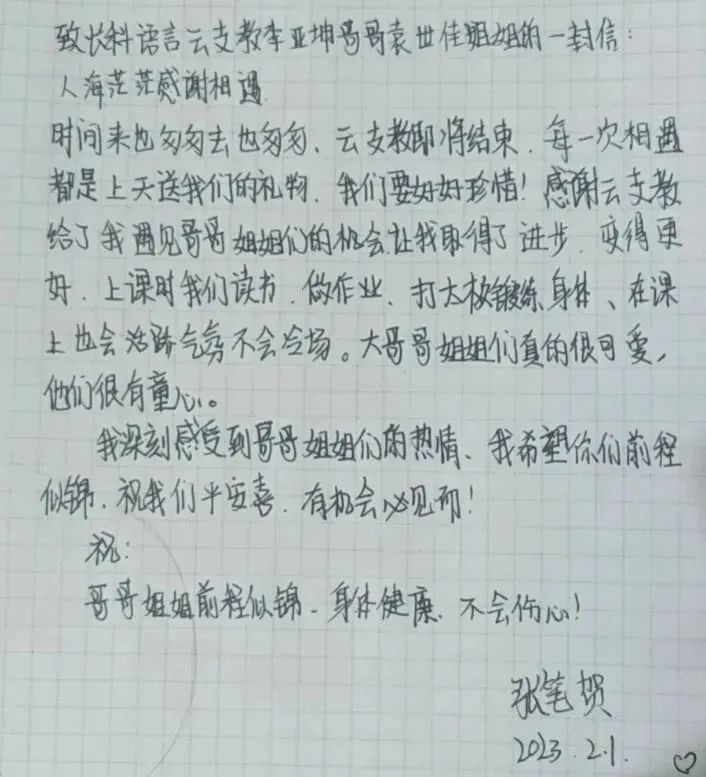 致长科语言云支教李亚坤哥哥袁世佳姐姐的一封信:
人海茫茫感谢相遇
时间来也匆匆去也匆匆、云支教即将结束、每一次相遇
都是上天送我们的礼物、我们要好好珍惜!感谢云支教
给了我遇见哥哥姐姐们的机会让我取得了进步、变得更
好、上课时我们读书、做作业、打太极锻练身体、在课
上也会活跃气氛不会冷场。大哥哥姐姐们真的很可爱,
他们很有童心。
我深刻感受到哥哥姐姐们的热情、我希望你们前程
似锦、祝我们平安喜、有机会必见面!
祝:
哥哥姐姐前程似锦、身体健康、不会伤心!
张笔贺
2023.2.1.